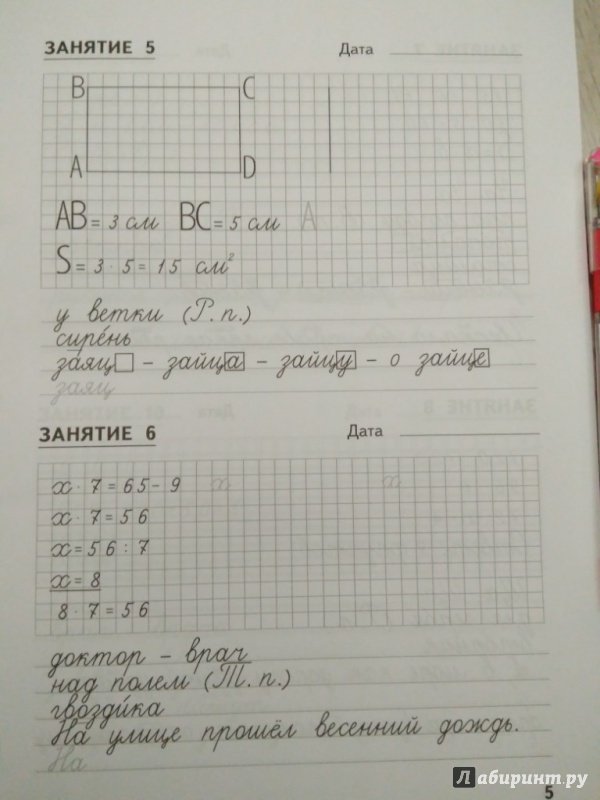 ЗАНЯТИЕ 5 Дата
B C
A D
AB = 3 см BC = 5 см A
S = 3 · 5 = 15 см²
у ветки (Р. п.)
сире́нь
за́яц – зайца – зайцу – о зайце
заяц
ЗАНЯТИЕ 6 Дата
x · 7 = 65 - 9 x x
x · 7 = 56
x = 56 : 7
x = 8
8 · 7 = 56
доктор – врач
над полем (Т. п.)
гвозди́ка
На улице прошёл весенний дождь.
На
Лабиринт.ру
5